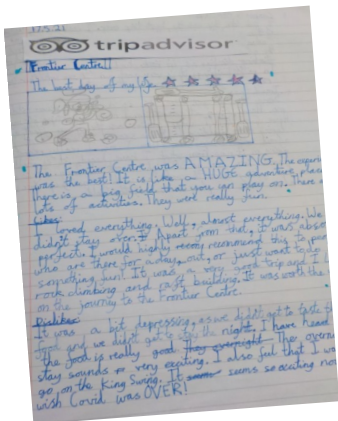 17.5.21
tripadvisor
Frontier Centre
The best day off my life
The Frontier Centre was AMAZING. The experie
was the best! It is like a HUGE adventure place
There is a big field that you can play on. There a
lots of activities. They were really fun.
Likes:
I loved everything. Well, almost everything. We
didn't stay over. Apart from that, it was abso
perfect. I would highly recommend this to peop
who are there for a day out, or just want to do
something fun! It was a very good trip and I l
rock climbing and raft building. It was worth the
on the journey to the Frontier Centre.
Dislikes:
It was a bit depressing, as we didn't get to taste the
food and we didn't get to stay the night. I have heard
the food is really good. They overnight The overn
stay sounds so very exciting. I also feel that I wo
go on the King Swing. It seems so exciting now
wish Covid was OVER!